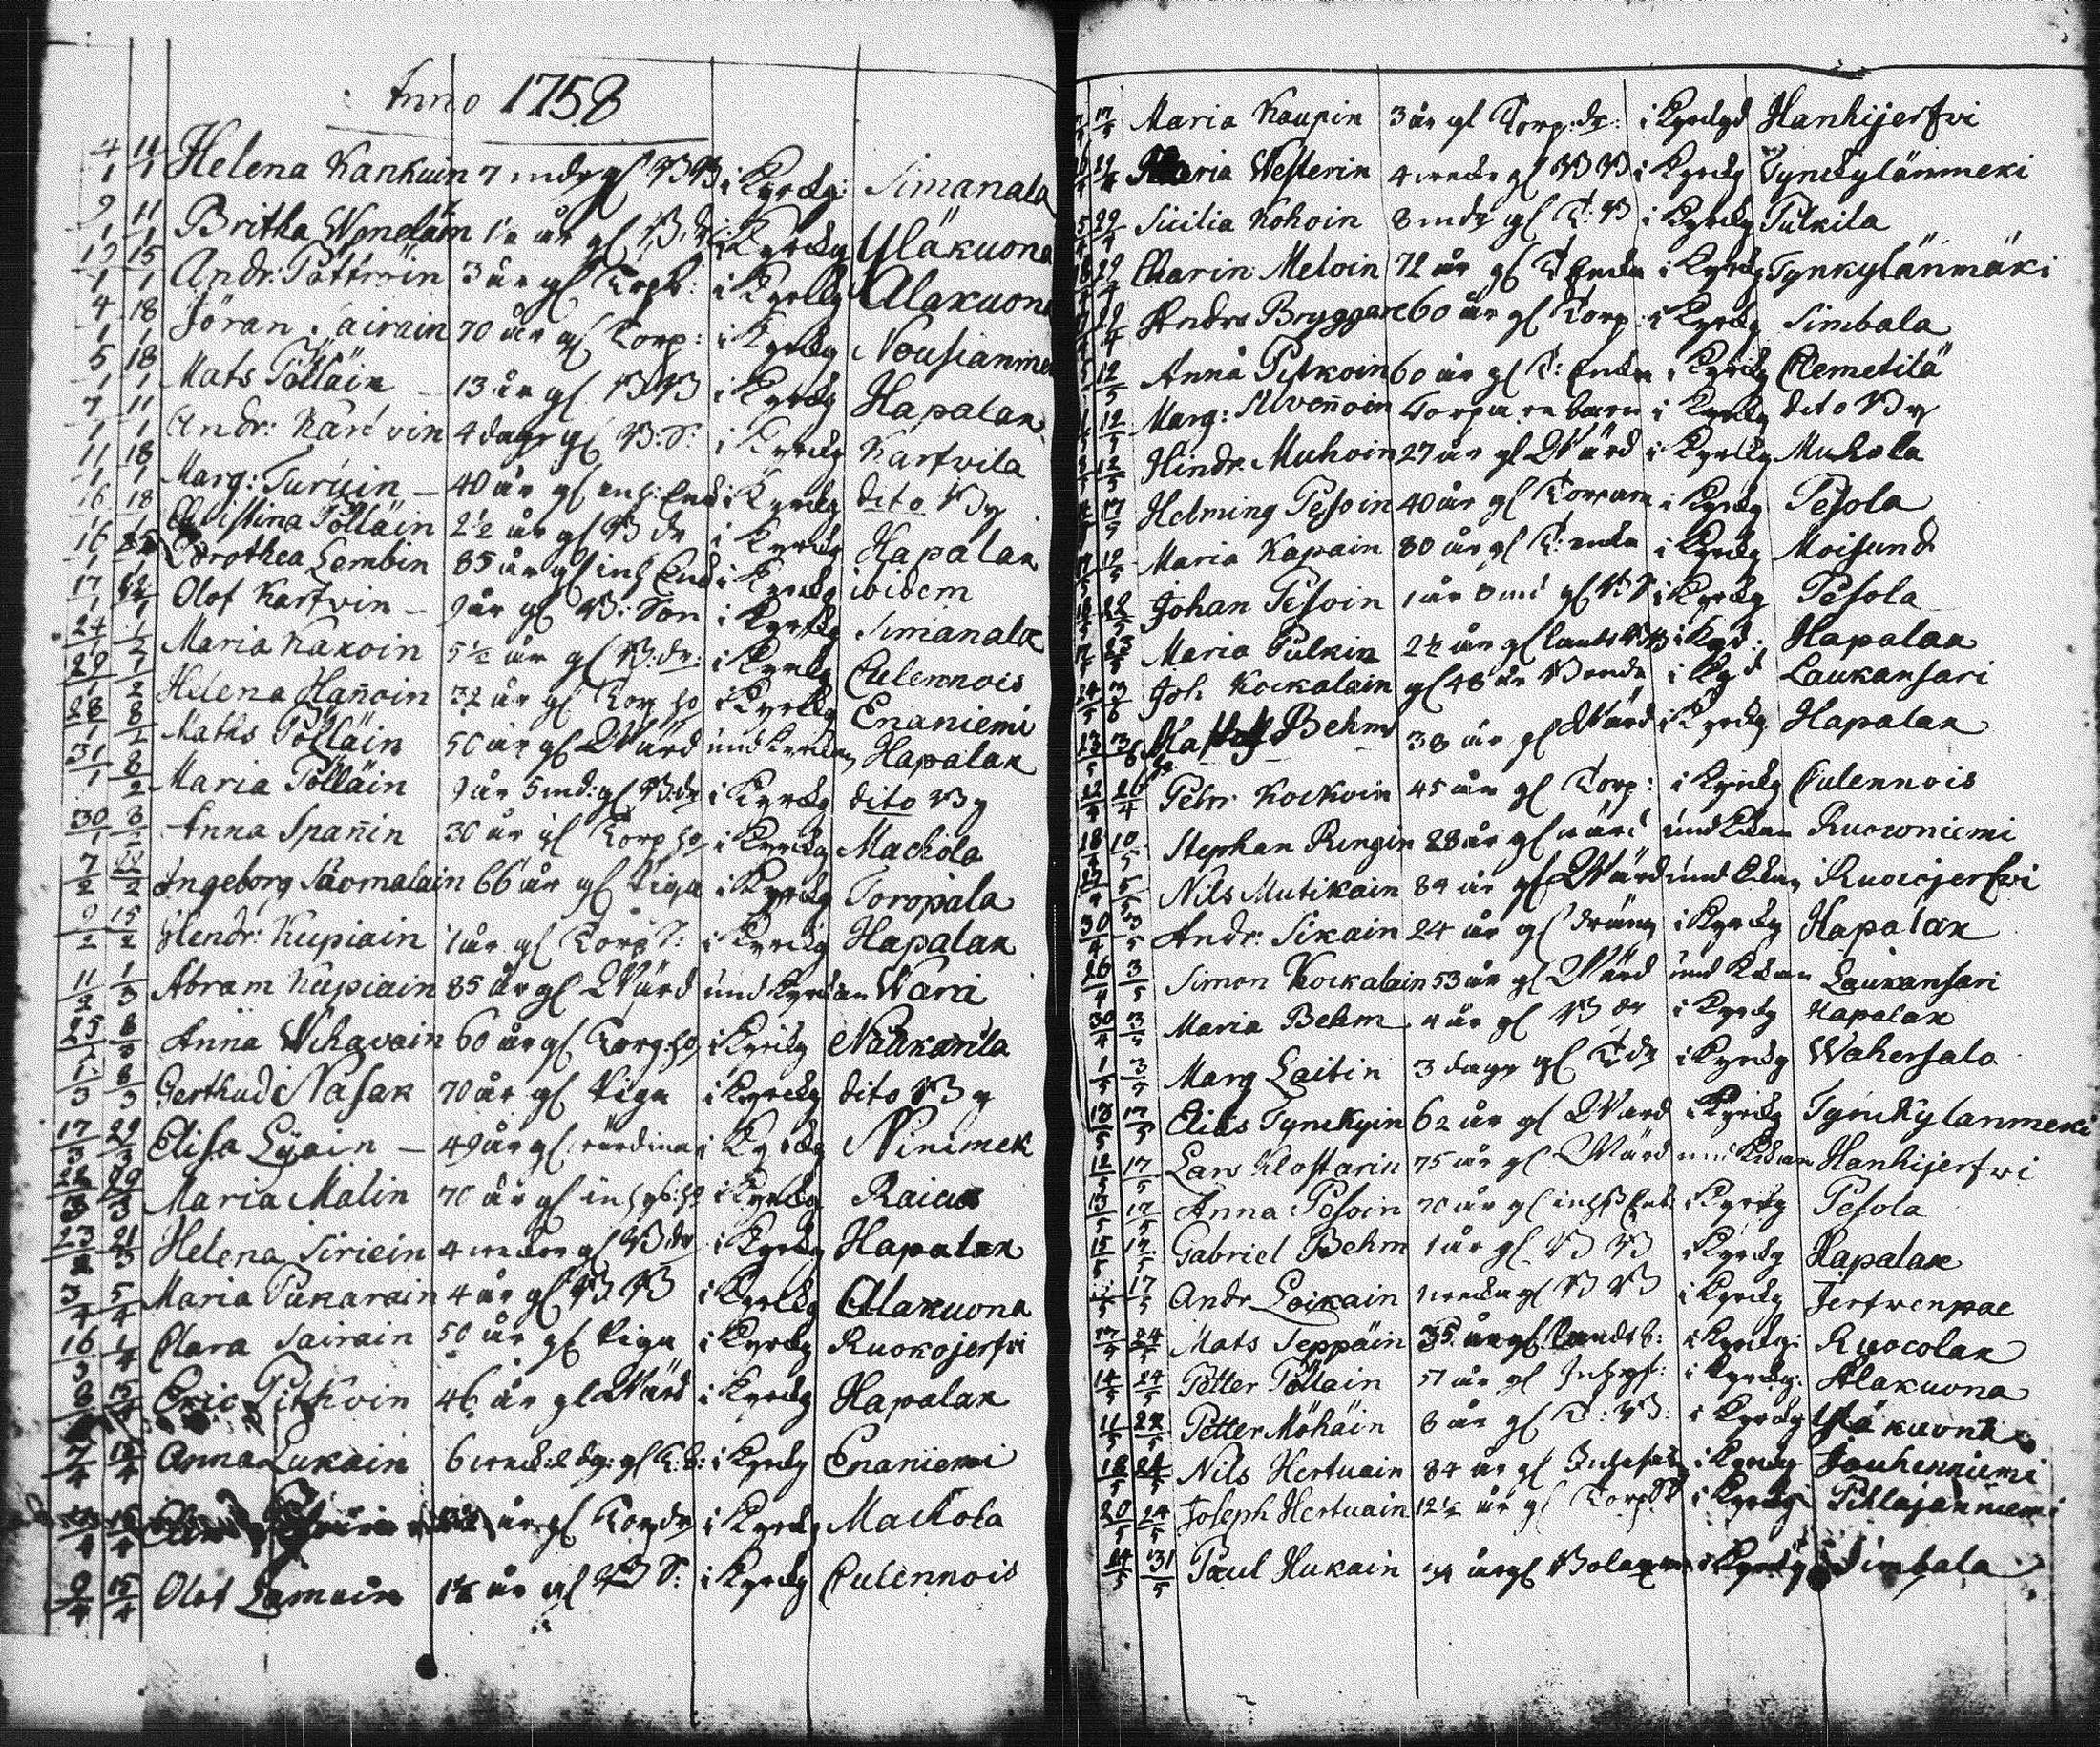 Anno 1758
4/1 11/1 Helena Kankuin 7 mdr gl BB i Kyrckg: Simanala
9/1 11/1 Britha 1½ år gl B:dr i Kyrckg Yläkuona
12/1 15/1 Andr: Pöttröin 3 år gl Torp: i Kyrckg Alakuona
4/1 18/1 Jöran Sairain 70 år gl Torp: i Kyrckg Nousianme
5/1 18/1 Mats Pölläin 13 år gl BB i Kyrckg Hapalax
7/1 11/1 Andr: Karfvin 4 dagr gl B:S: i Kyrckg Karfvila
11/1 18/1 Marg: Turuin 40 år gl inh: Enk i Kyrckg dito By
16/1 18/1 Christina Pölläin 2½ år gl B dr i Kyrckg Hapalax
16/1 Dorothea Lembin 85 år gl inh Enk i Kyrckg ibidem
17/1 Olof Karfvin 9 år gl B: Son i Kyrckg Simanala
24/1 1/2 Maria Kaxoin 5½ år gl B:dr: i Kyrckg Culennois
29/1 1/2 Helena Hañoin 32 år gl Torp ho i Kyrckg Enaniemi
28/1 8/2 Maths Pölläin 50 år gl Wärd und kyrckan Hapalax
31/1 8/2 Maria Pölläin 9 år 5 md: gl B:dr i Kyrckg dito By
30/1 8/2 Anna Spañin 30 år gl Torp ho i Kyrckg Mackola
7/2 22/2 Ingeborg Savomalain 66 år gl Piga i Kyrckg Toropala
9/2 15/2 Hendr: Kupiain 1 år gl Torp S: i Kyrckg Hapalax
11/2 1/3 Abram Kupiain 85 år gl Wärd und kyrckan Wara
25/2 8/3 Anna Wihavain 60 år gl Torp: ho i Kyrckg Naukarila
1/3 8/3 Gerthud Nasak 70 år gl Piga i Kyrckg dito By
17/3 29/3 Elisa Lyäin 49 år gl värdina i Kyrckg Ninimek
22/3 29/3 Maria Malin 70 år gl i Kyrckg Raicus
23/2 21/3 Helena Siriein 4 weckor gl B dr i Kyrckg Hapalax
3/4 5/4 Maria Pukarain 4 år gl BB i Kyrckg Alakuona
16/3 1/4 Clara Sairain 50 år gl Piga i Kyrckg Ruokojerfvi
8/4 15/4 Eric Pitkoin 46 år gl Wärd i Kyrckg Hapalax
7/4 15/4 Anna Lukain 6 weck: 2 dg: gl T:B: i Kyrckg Enaniemi
år gl Torpdr i Kyrckg Mackola
9/4 15/4 Olof Lamain 1½ år gl B S: i Kyrckg Culennois
17/5 Maria Kaupin 3 år gl Torp:dr: i Kyrckgd Hanhijerfvi
Maria Westerin 4 weckr gl BB i Kyrckg Tynckylänmeki
Sicilia Kohoin 8 mdr gl T:B i Kyrckg Pulkila
Charin Meloin 72 år gl T Encka i Kyrckg Tynkylänmäki
Andrs Bryggare 60 år gl Torp: i Kyrckg Simbala
12/5 Anna Pitkoin 60 år gl T: Encka i Kyrckg Clemetilä
12/5 Marg: Silveñoin Torpare barn i Kyrckg dito By
12/5 Hindr. Muhoin 27 år gl Wärd i Kyrckg Muhola
17/5 Helming Pesoin 40 år gl Torpare i Kyrckg Pesola
12/5 Maria Kapain 80 år gl T: encka i Kyrckg Moisund
22/5 Johan Pesoin 1 år 8 md gl T: S i Kyrckg Pesola
23/5 Maria Pulkin 2½ år gl i Kyrckg: Hapalax
24/5 3/6 Joh Kockalain gl 48 år Bonde i Kgd Laukansari
23/5 3/6 Behm 38 år gl Wärd i Kyrckg Hapalax
12/4 26/4 Petr: Kockoin 45 år gl Torp: i Kyrckg Culennois
18/4 10/5 Stephan Ringin 28 år gl wärd und Kkan Ruocwniemi
5/5 Nils Mutikain 84 år gl Wärd und Kkan Ruocojerfwi
30/4 3/5 Andr: Sikain 24 år gl dräng i Kyrckg Hapalax
26/4 3/5 Simon Kockalain 53 år gl Wärd und Kkan Laukansari
30/4 3/5 Maria Behm 4 år gl B dr i Kyrckg Hapalax
1/5 3/5 Marg Laitin 3 dagr gl T dr i Kyrckg Wahersalo
13/5 17/5 Elias Tynckyin 62 år gl Ward i Kyrckg Tynckylanmeki
12/5 17/5 Lars Klostarin 75 år gl Wärd und Kkan Hanhijerfwi
13/5 17/5 Anna Pesoin 70 år gl i Kyrckg Pesola
15/5 17/5 Gabriel Behm 1 år gl BB i Kyrckg Hapalax
17/5 Andr Loikain wecka gl BB i Kyrckg Jerfwenpae
17/5 24/5 Mats Seppäin 35 år gl Landtb: i Kyrckg: Ruocolax
14/5 24/5 Petter Pöllain 57 år gl Inhys: i Kyrckg: Alakuona
11/5 24/5 Petter Möhäin 8 år gl T:B: i Kyrckg Yläkuona
18/5 24/5 Nils Hertuain 84 år gl i Kyrckg Jouhenniemi
20/5 24/5 Joseph Hertuain 12½ år gl Torp S i Kyrckg Pihlajanniemi
24/5 31/5 Paul Hukain 34 år gl Bolagsman i Kyrckg Simbala